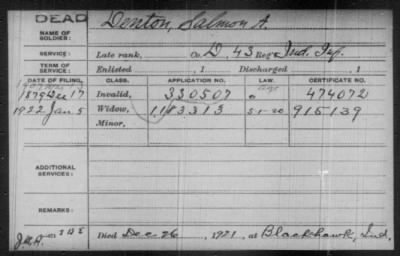 DEAD Denton, Salmon A.
NAME OF SOLDIER:
SERVICE: Late rank, Co. D, 43 Reg't Ind. Inf.
TERM OF SERVICE: Enlisted , 1 Discharged , 1
DATE OF FILING. CLASS. APPLICATION NO. LAW. CERTIFICATE NO.
1879 Dec 17 Invalid, 330507 474072
1922 Jan 5 Widow, 1183313 5-1-20 915139
Minor,
ADDITIONAL SERVICES:
REMARKS:
Died Dec 26, 1921, at Blackhawk, Ind.